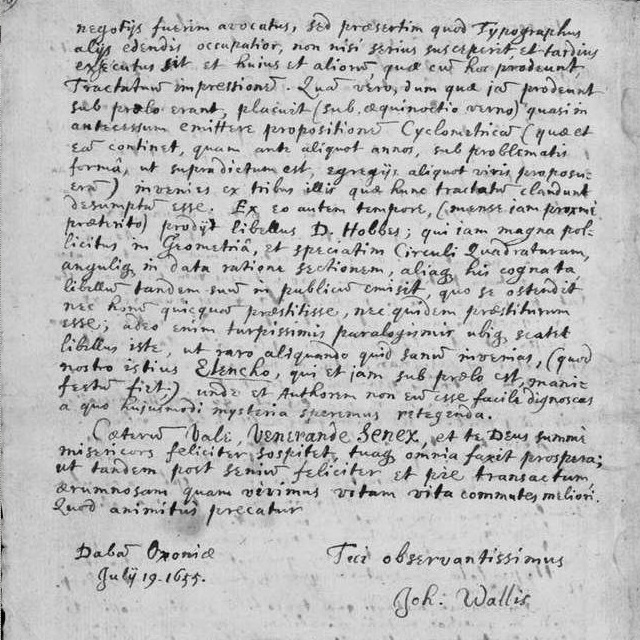 negotijs fuerim avocatus, sed præsertim quod Typographus
alijs edendis occupatior, non nisi serius susceperit et tardius
executus sit et huius et aliorum quæ cum hoc prodeunt,
Tractatuum impressionē. Quā vero, dum quæ jā prodeunt
sub prælo erant, placuit (sub æquinoctio verno) quasi in
antecessum emittere propositionē Cyclometricā (quæ et
eā continet, quam ante aliquot annos, sub problematis
formâ, ut supradictum est, egregijs aliquot viris proposue-
rā) invenies ex tribus illis quæ hunc tractatū claudunt
desumptum esse. Ex eo autem tempore, (mense jam proximè
præterito) prodijt libellus D. Hobbes; qui jam magna pol-
licitus in Geometriâ, et speciatim Circuli Quadraturam,
anguliq; in data ratione sectionem, aliaq; his cognata,
libellū tandem suū in publicū emisit, quo se ostendit
nec bonū quicquā præstitisse, nec quidem præstiturum
esse; adeo enim turpissimis paralogismis ubiq; scatet
libellus iste, ut raro aliquando quid sanū invenias, (quod
nostro istius Elencho, qui et jam sub prælo est, manife-
festum fiet,) unde et Authorem non eū esse facile dignoscas
a quo hujusmodi mysteria speremus retegenda.
Cæterum Vale, Venerande Senex, et te Deus summè
misericors feliciter sospitet, tuaq; omnia faxit prospera;
ut tandem post senium feliciter et piè transactum,
ærumnosam quam vivimus vitam vita commutes meliori.
Quod animitus precatur
Dabā Oxoniæ
Julij 19. 1655.
Tui observantissimus
Joh: Wallis